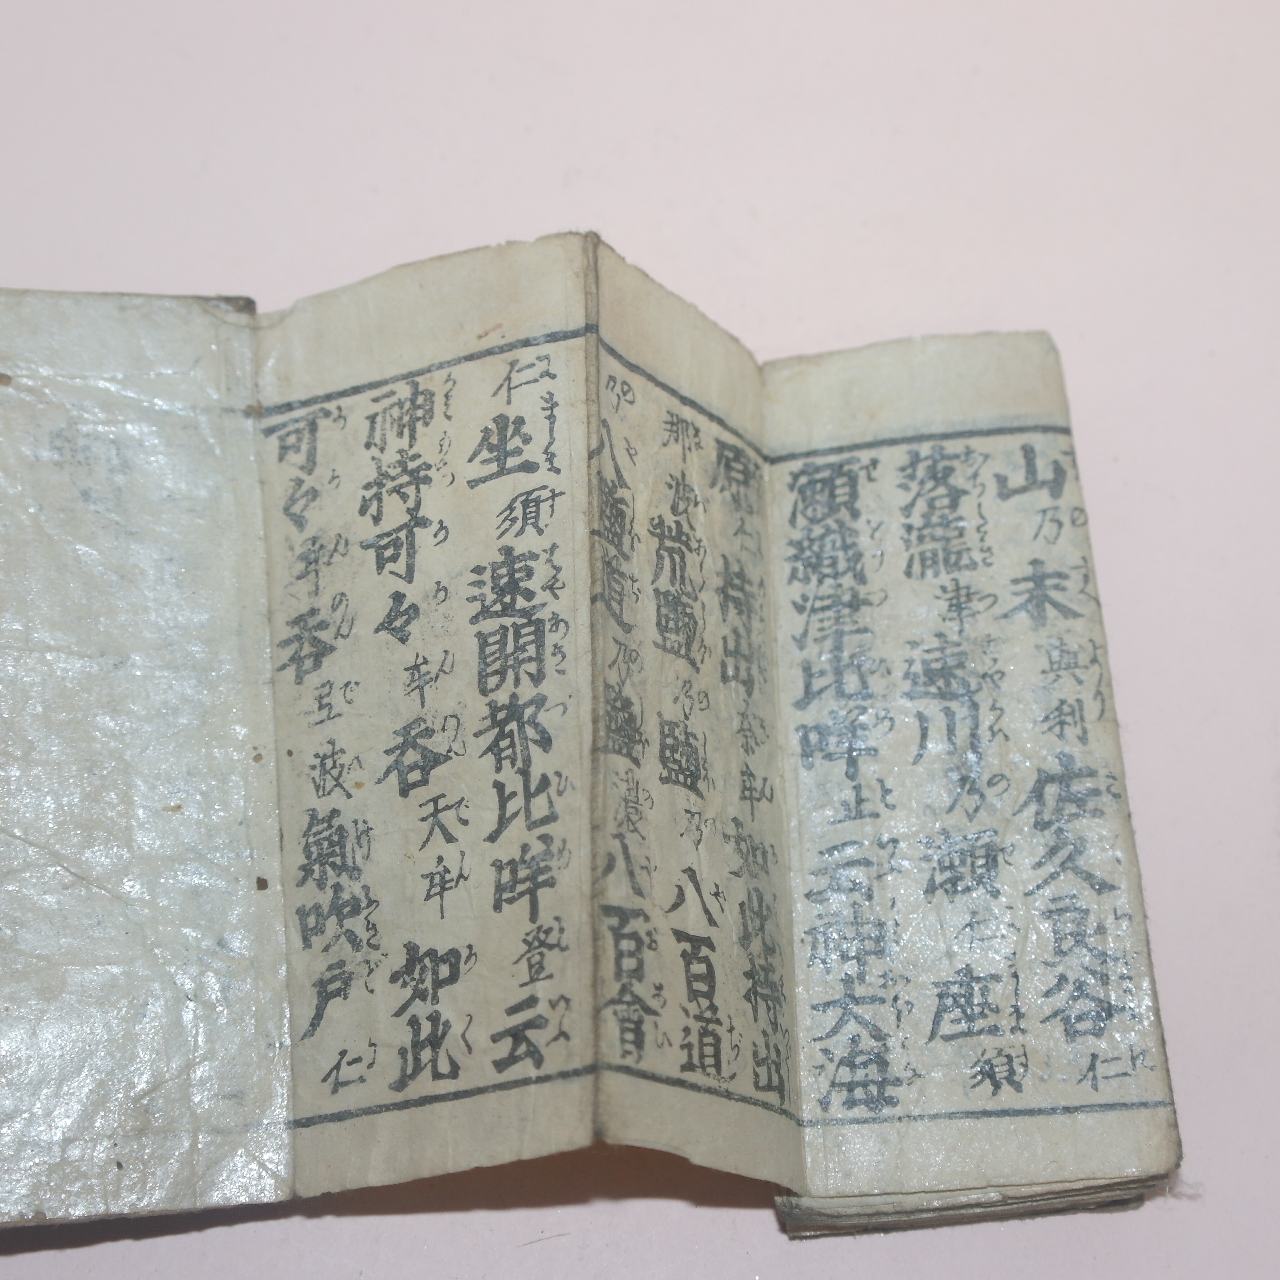 山乃末與利佐久良谷仁
落瀧津速川乃瀬仁座須
瀬織津比咩止云神大海
原仁持出奈牟如此持出
那波荒鹽乃鹽乃八百道
乃八鹽道乃鹽濃八百會
仁坐須速開都比咩登云
神持可々牟呑天牟如此
可々牟呑弖波氣吹戸仁